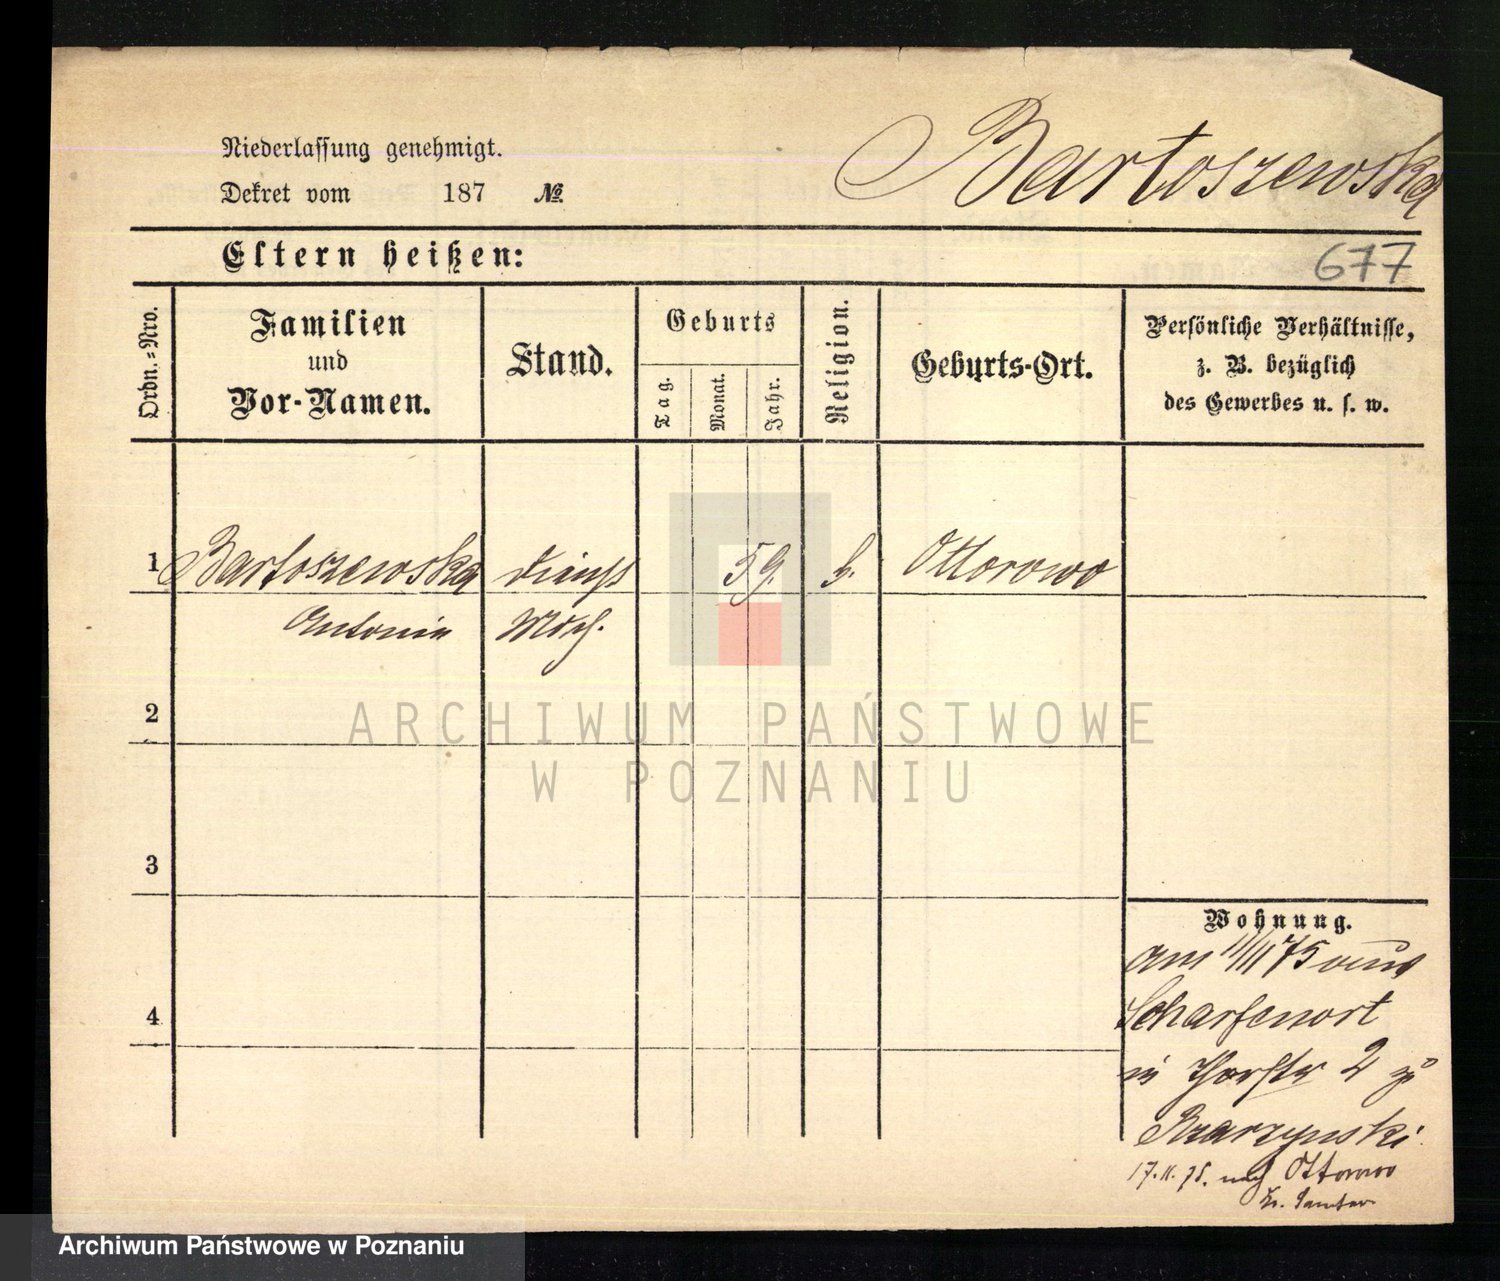 Bartoszewska
Niederlassung genehmigt.
Dekret vom 187 №
677
Eltern heißen:
Ordn.-Nro.
Familien
und
Vor-Namen.
Stand.
Geburts
Tag.
Monat.
Jahr.
Religion.
Geburts-Ort.
Persönliche Verhältnisse,
z. B. bezüglich
des Gewerbes u. s. w.
1 Bartoszewska Dienst 59. k. Ottorowo
Antonie Mdch.
2
ARCHIWUM PAŃSTWOWE
W POZNANIU
3
4
Wohnung.
am 11/11 75 aus
Scharfenort
in Thorstr 2 zu
17.11.75. nach Ottorowo
Kr. Samter
Archiwum Państwowe w Poznaniu